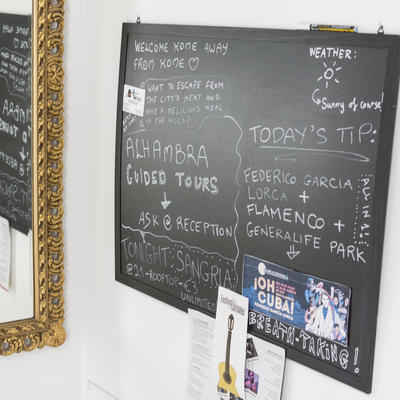 WELCOME HOME AWAY
FROM HOME ♡
WANT TO ESCAPE FROM
THE CITY'S HEAT AND
HAVE A DELICIOUS MEAL
IN THE HILLS?
ALHAMBRA
GUIDED TOURS
ASK @ RECEPTION
TONIGHT: SANGRIA
@21-ROOFTOP-€3
UNLIMITED
WEATHER:
Sunny of course!
TODAY'S TIP:
FEDERICO GARCIA
LORCA +
FLAMENCO +
GENERALIFE PARK
ALL IN 1!
¡OH
CUBA!
BREATH-TAKING!